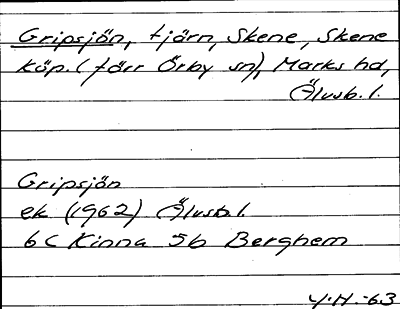 Gripsjön, tjärn, Skene, Skene
köp. (förr Örby sn), Marks hd,
Älvsb. l.
Gripsjön
ek (1962) Älvsb. l.
6C Kinna 5b Berghem
Y.H.-63